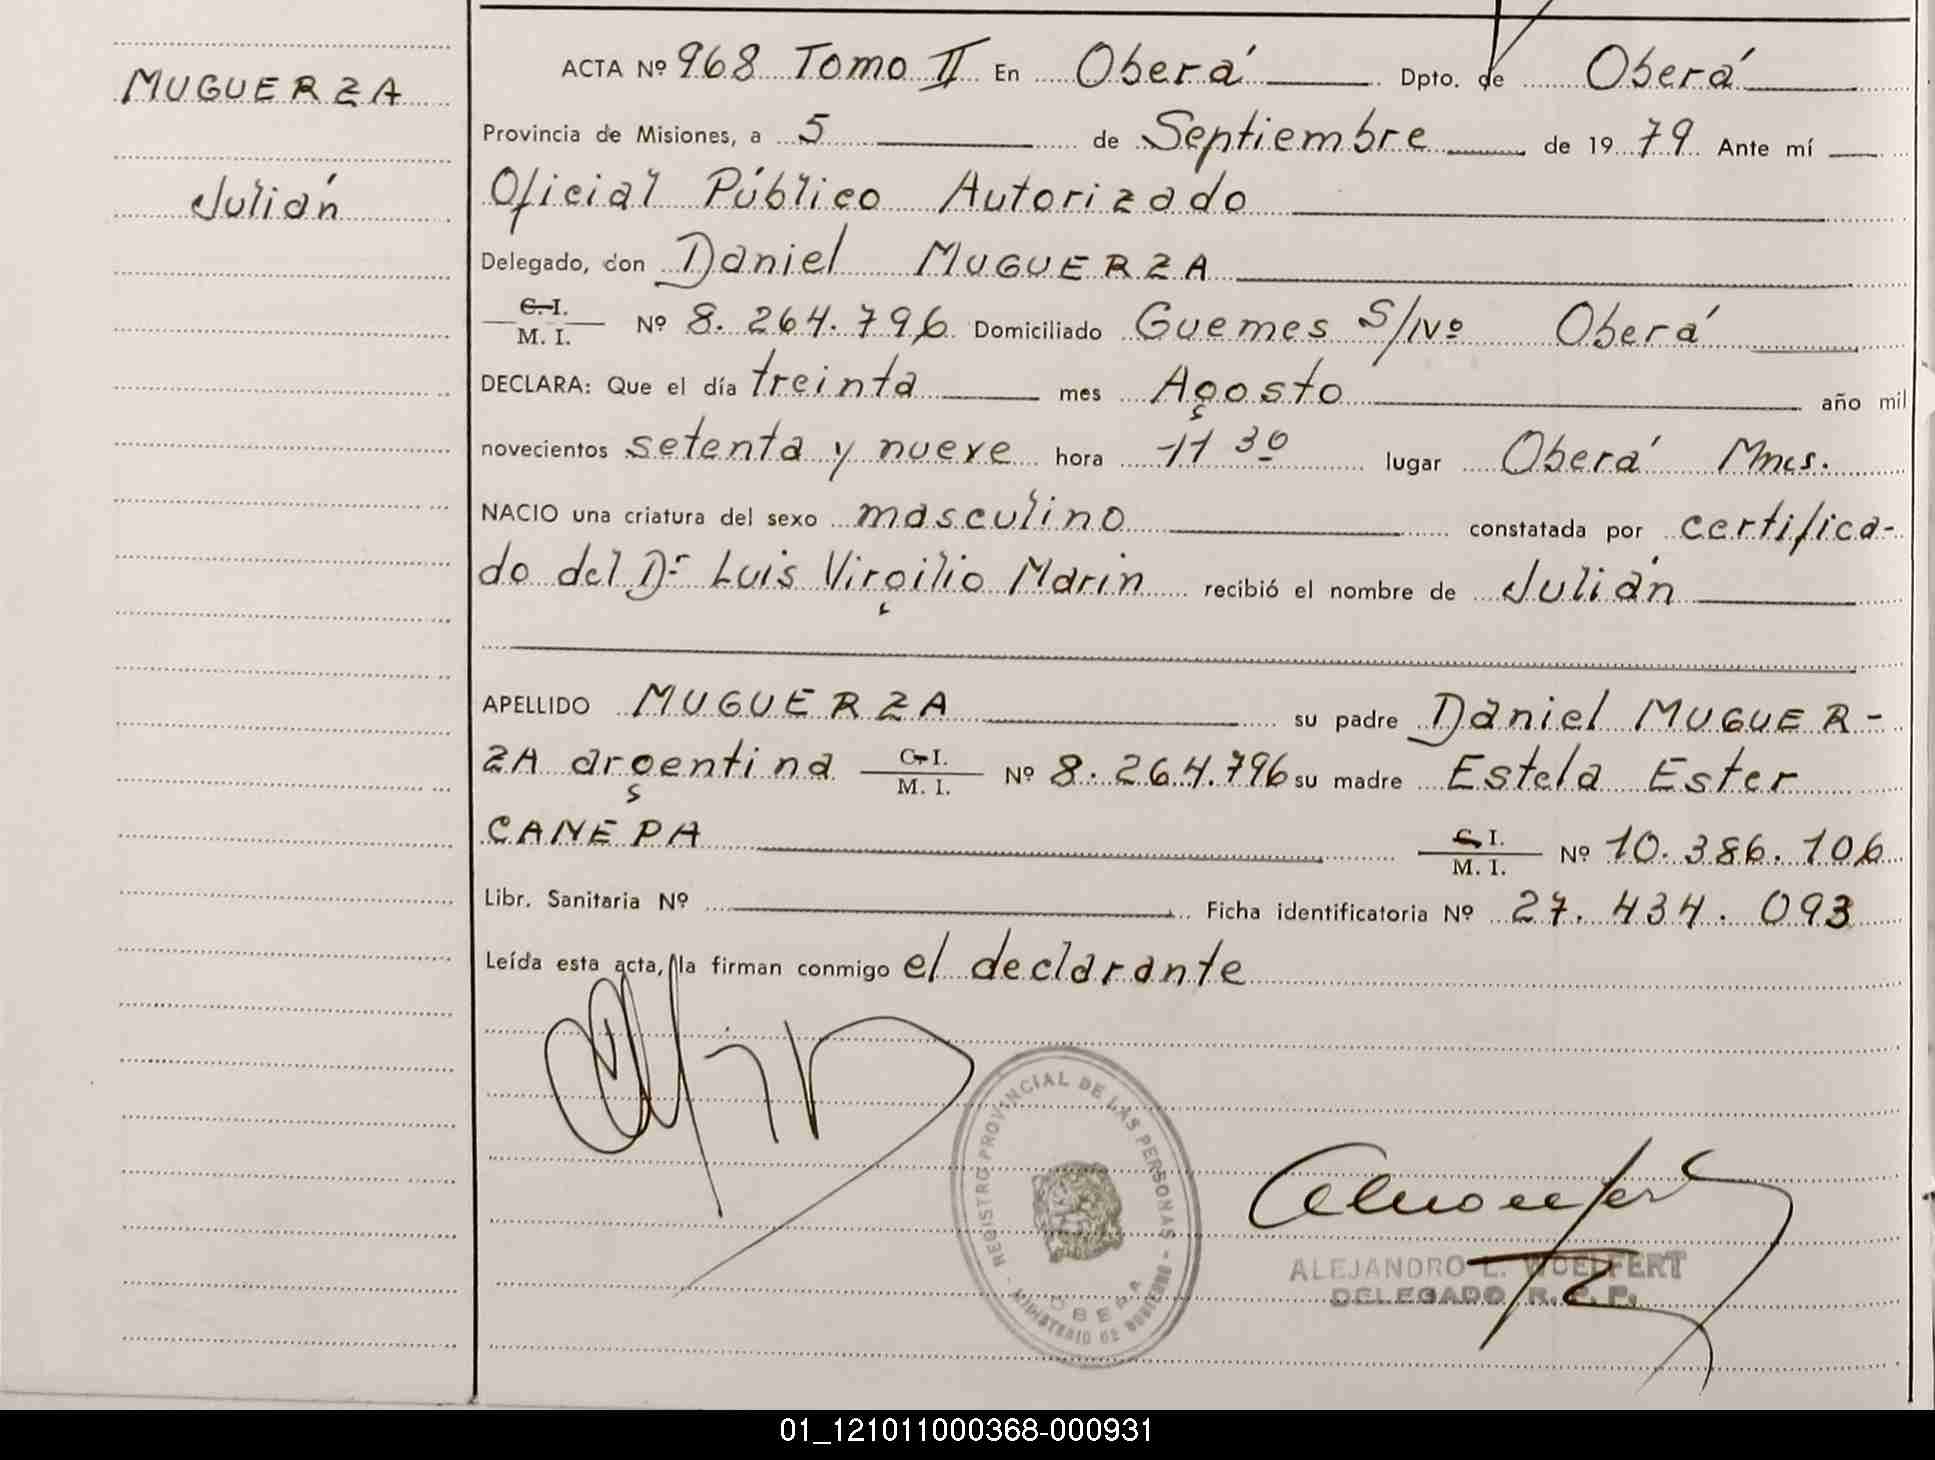 MUGUERZA
Julián
ACTA Nº 968 Tomo II En Oberá Dpto. de Oberá
Provincia de Misiones, a 5 de Septiembre de 19 79 Ante mí
Oficial Público Autorizado
Delegado, don Daniel MUGUERZA
C. I.
M. I. Nº 8.264.796 Domiciliado Guemes S/Nº Oberá
DECLARA: Que el día treinta mes Agosto año mil
novecientos setenta y nueve hora 11 30 lugar Oberá Mnes.
NACIO una criatura del sexo masculino constatada por certifica-
do del Dr Luis Virgilio Marin recibió el nombre de Julián
APELLIDO MUGUERZA su padre Daniel MUGUER-
ZA argentina C. I.
M. I. Nº 8.264.796 su madre Estela Ester
CANEPA C. I.
M. I. Nº 10.386.106
Libr. Sanitaria Nº Ficha identificatoria Nº 27.434.093
Leída esta acta, la firman conmigo el declarante
REGISTRO PROVINCIAL DE LAS PERSONAS - MINISTERIO DE GOBIERNO -
OBERA
ALEJANDRO L. WOELFERT
DELEGADO R. P. P.
01_121011000368-000931